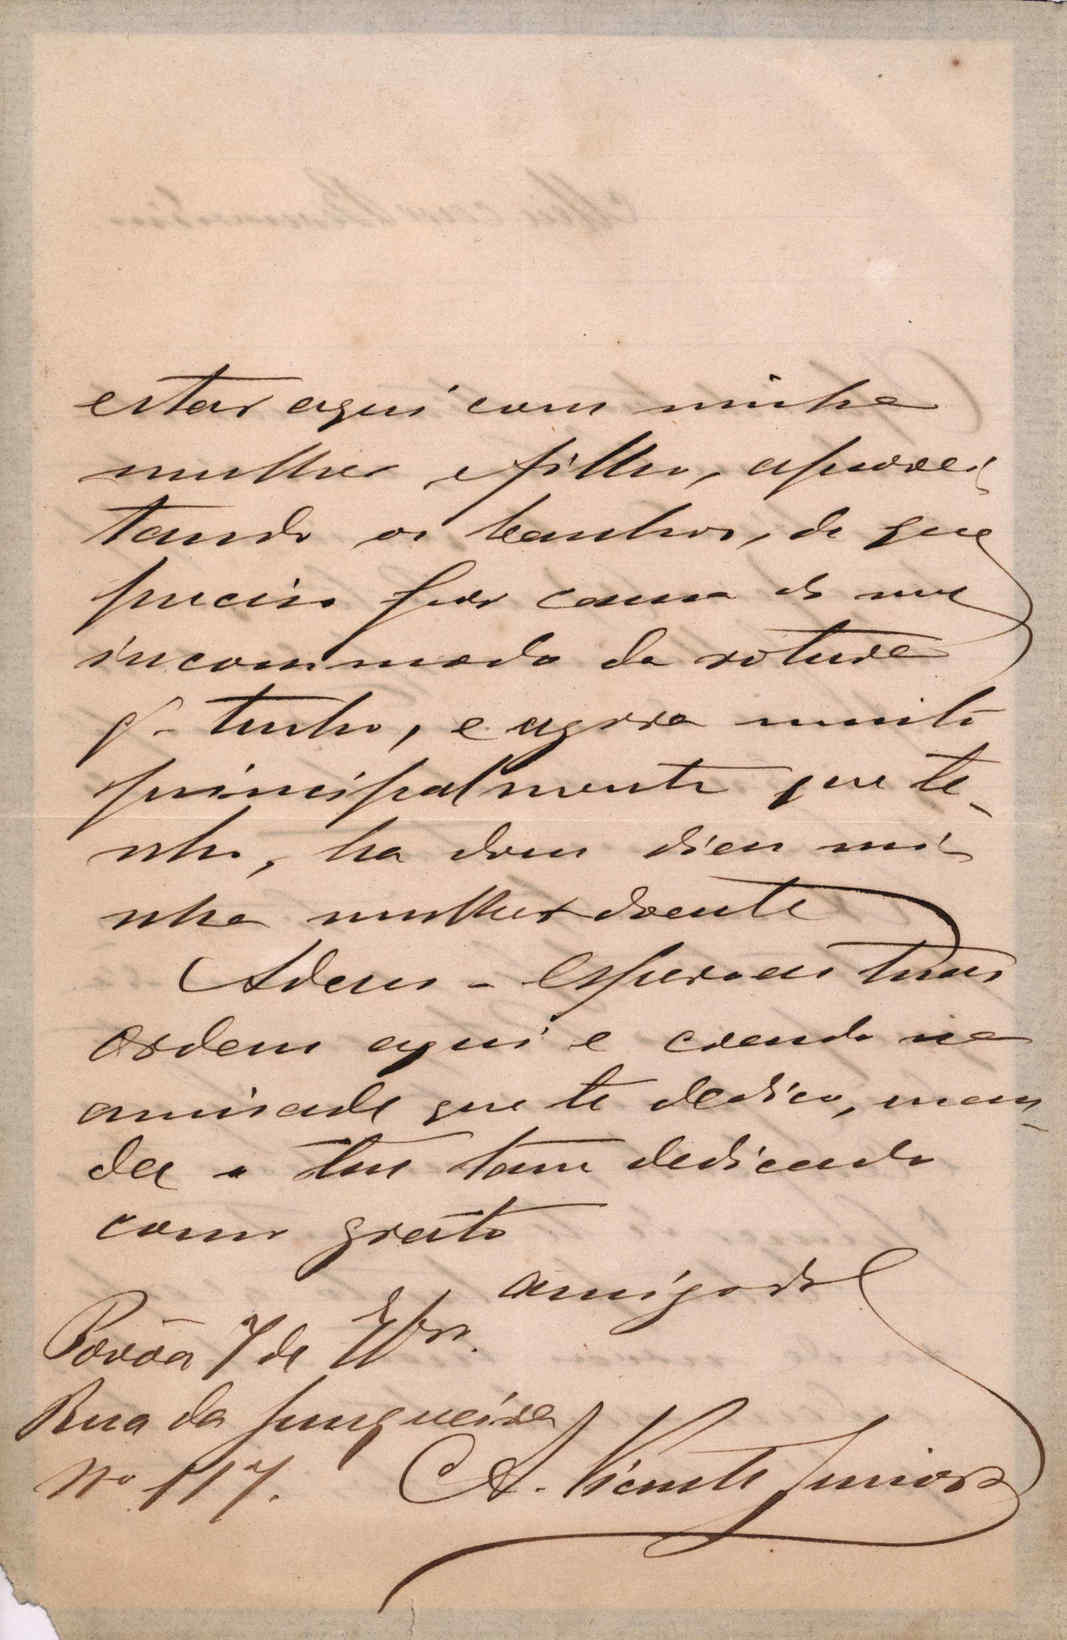 estar aqui com minha
mulher e filho, aprovei-
tando os banhos, de que
preciso por causa do meu
incommodo da rotura
q. tenho, e agora muito
principalmente que te-
nho, ha dous dias mi-
nha mulher doente
Adeus - Espero as tuas
ordens aqui e crendo na
amisade que te dedico, man-
da o teu tam dedicado
como grato
amigo do C
Povoa 7 de 7bro.
Rua da Junqueira
No 117.
A. Vicente Junior